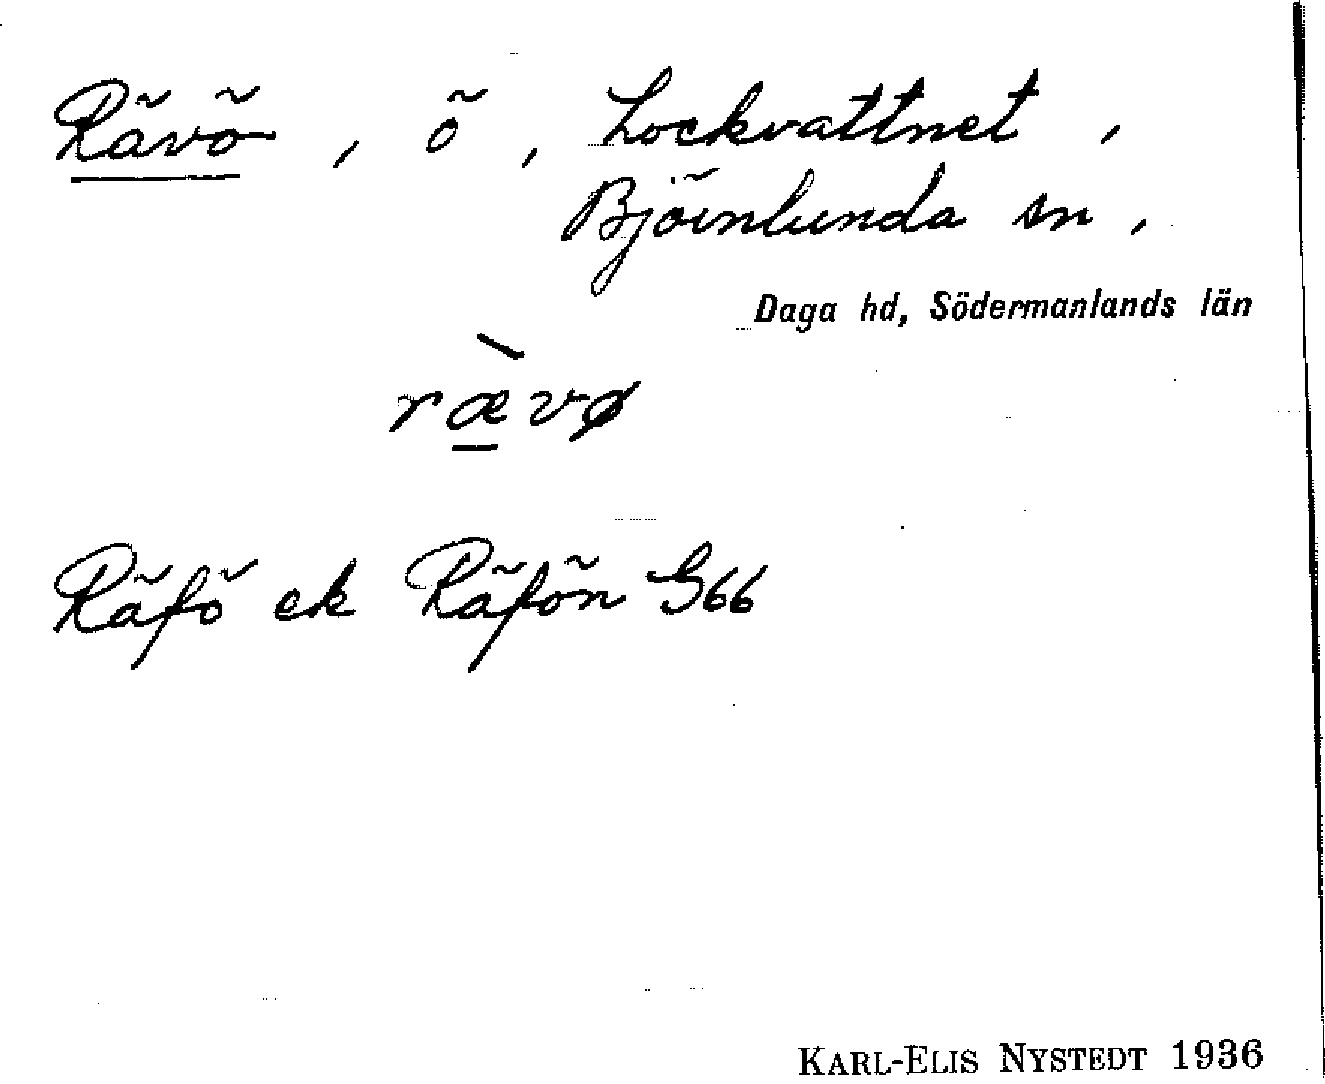 Rävö, ö, Lockvattnet,
Björnlunda sn,
Daga hd, Södermanlands län
r æ̀ v ø
Räfö ek Räfön G66
KARL-ELIS NYSTEDT 1936